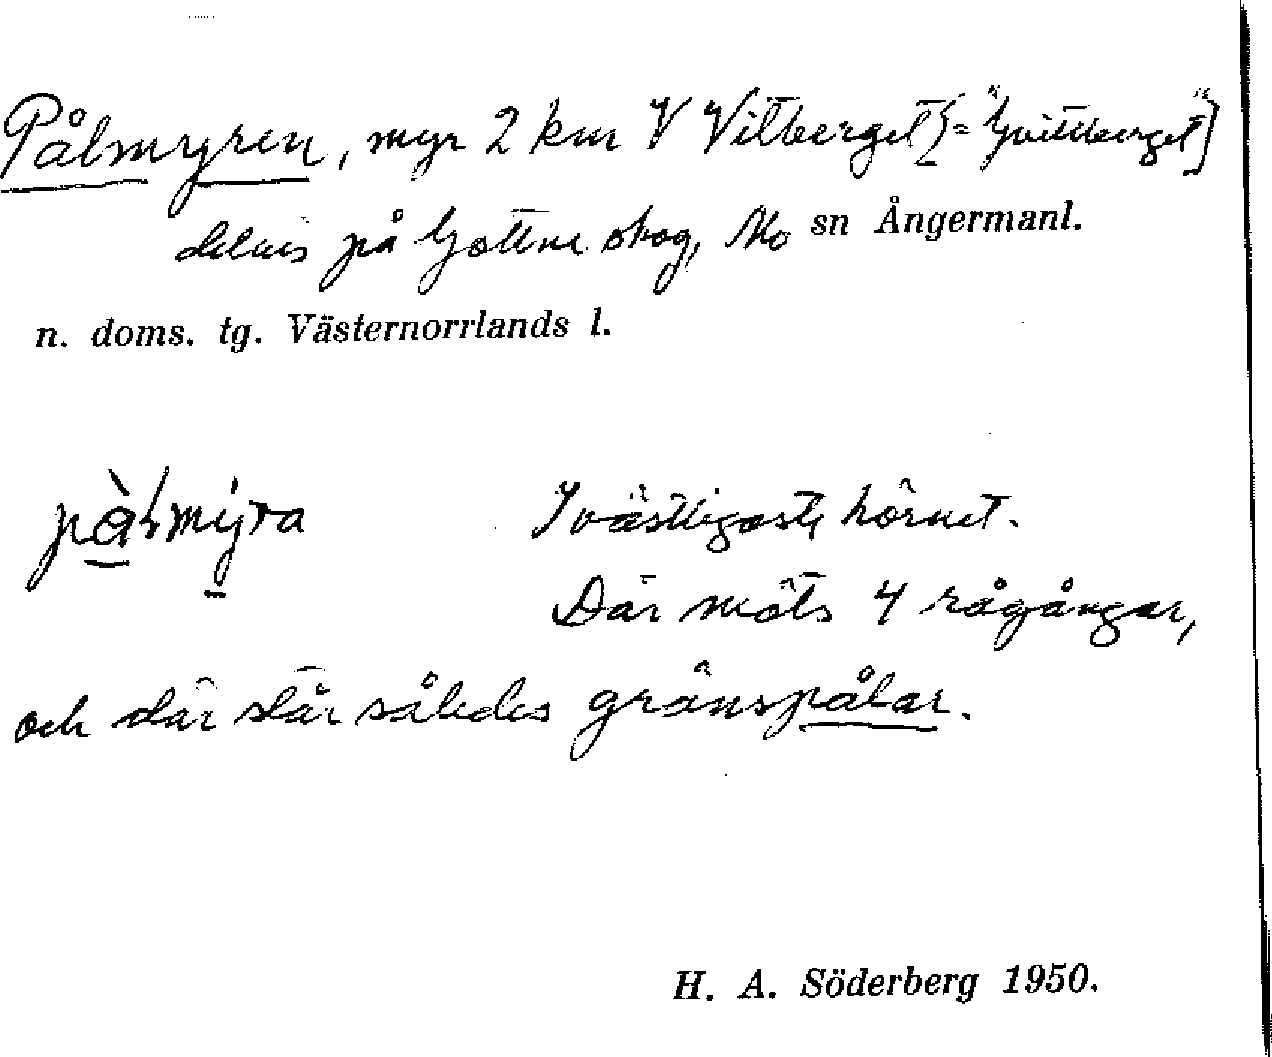 Pålmyren, myr 2 km V Vitberget [=
delvis på Gottne skog, Mo sn Ångermanl.
n. doms. tg. Västernorrlands l.
I västligaste hörnet.
Där möts 4 rågångar,
och där står således gränspålar.
H. A. Söderberg 1950.